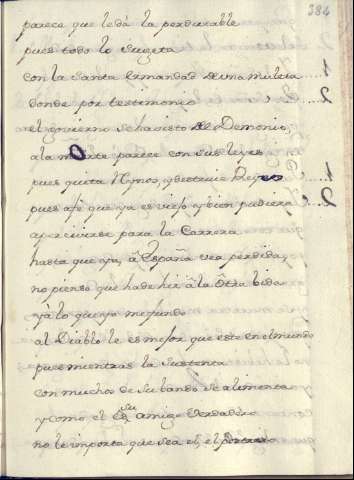 384
parece que le dá la perdurable
pues todo lo sugeta
con la Santa Ermandad de una muleta
donde por testimonio
el govierno se ha visto del Demonio,
a la muerte parece con sus leyes,
pues quita Mynos, y destruie Reyes
pues a fe que ya es viejo, y bien pudiera
apercivirse para la Carrera
hasta que ya, â España vea perdida,
no pienso que ha de hir â la Otra bida
yà lo que yo me fundo
al Diablo le es mejor que este en el mundo
pues mientras la sustenta
con muchos de su bando se alimenta
y como el es su amigo verdadero
no le importa que sea el, el postrero
1
2
1
2